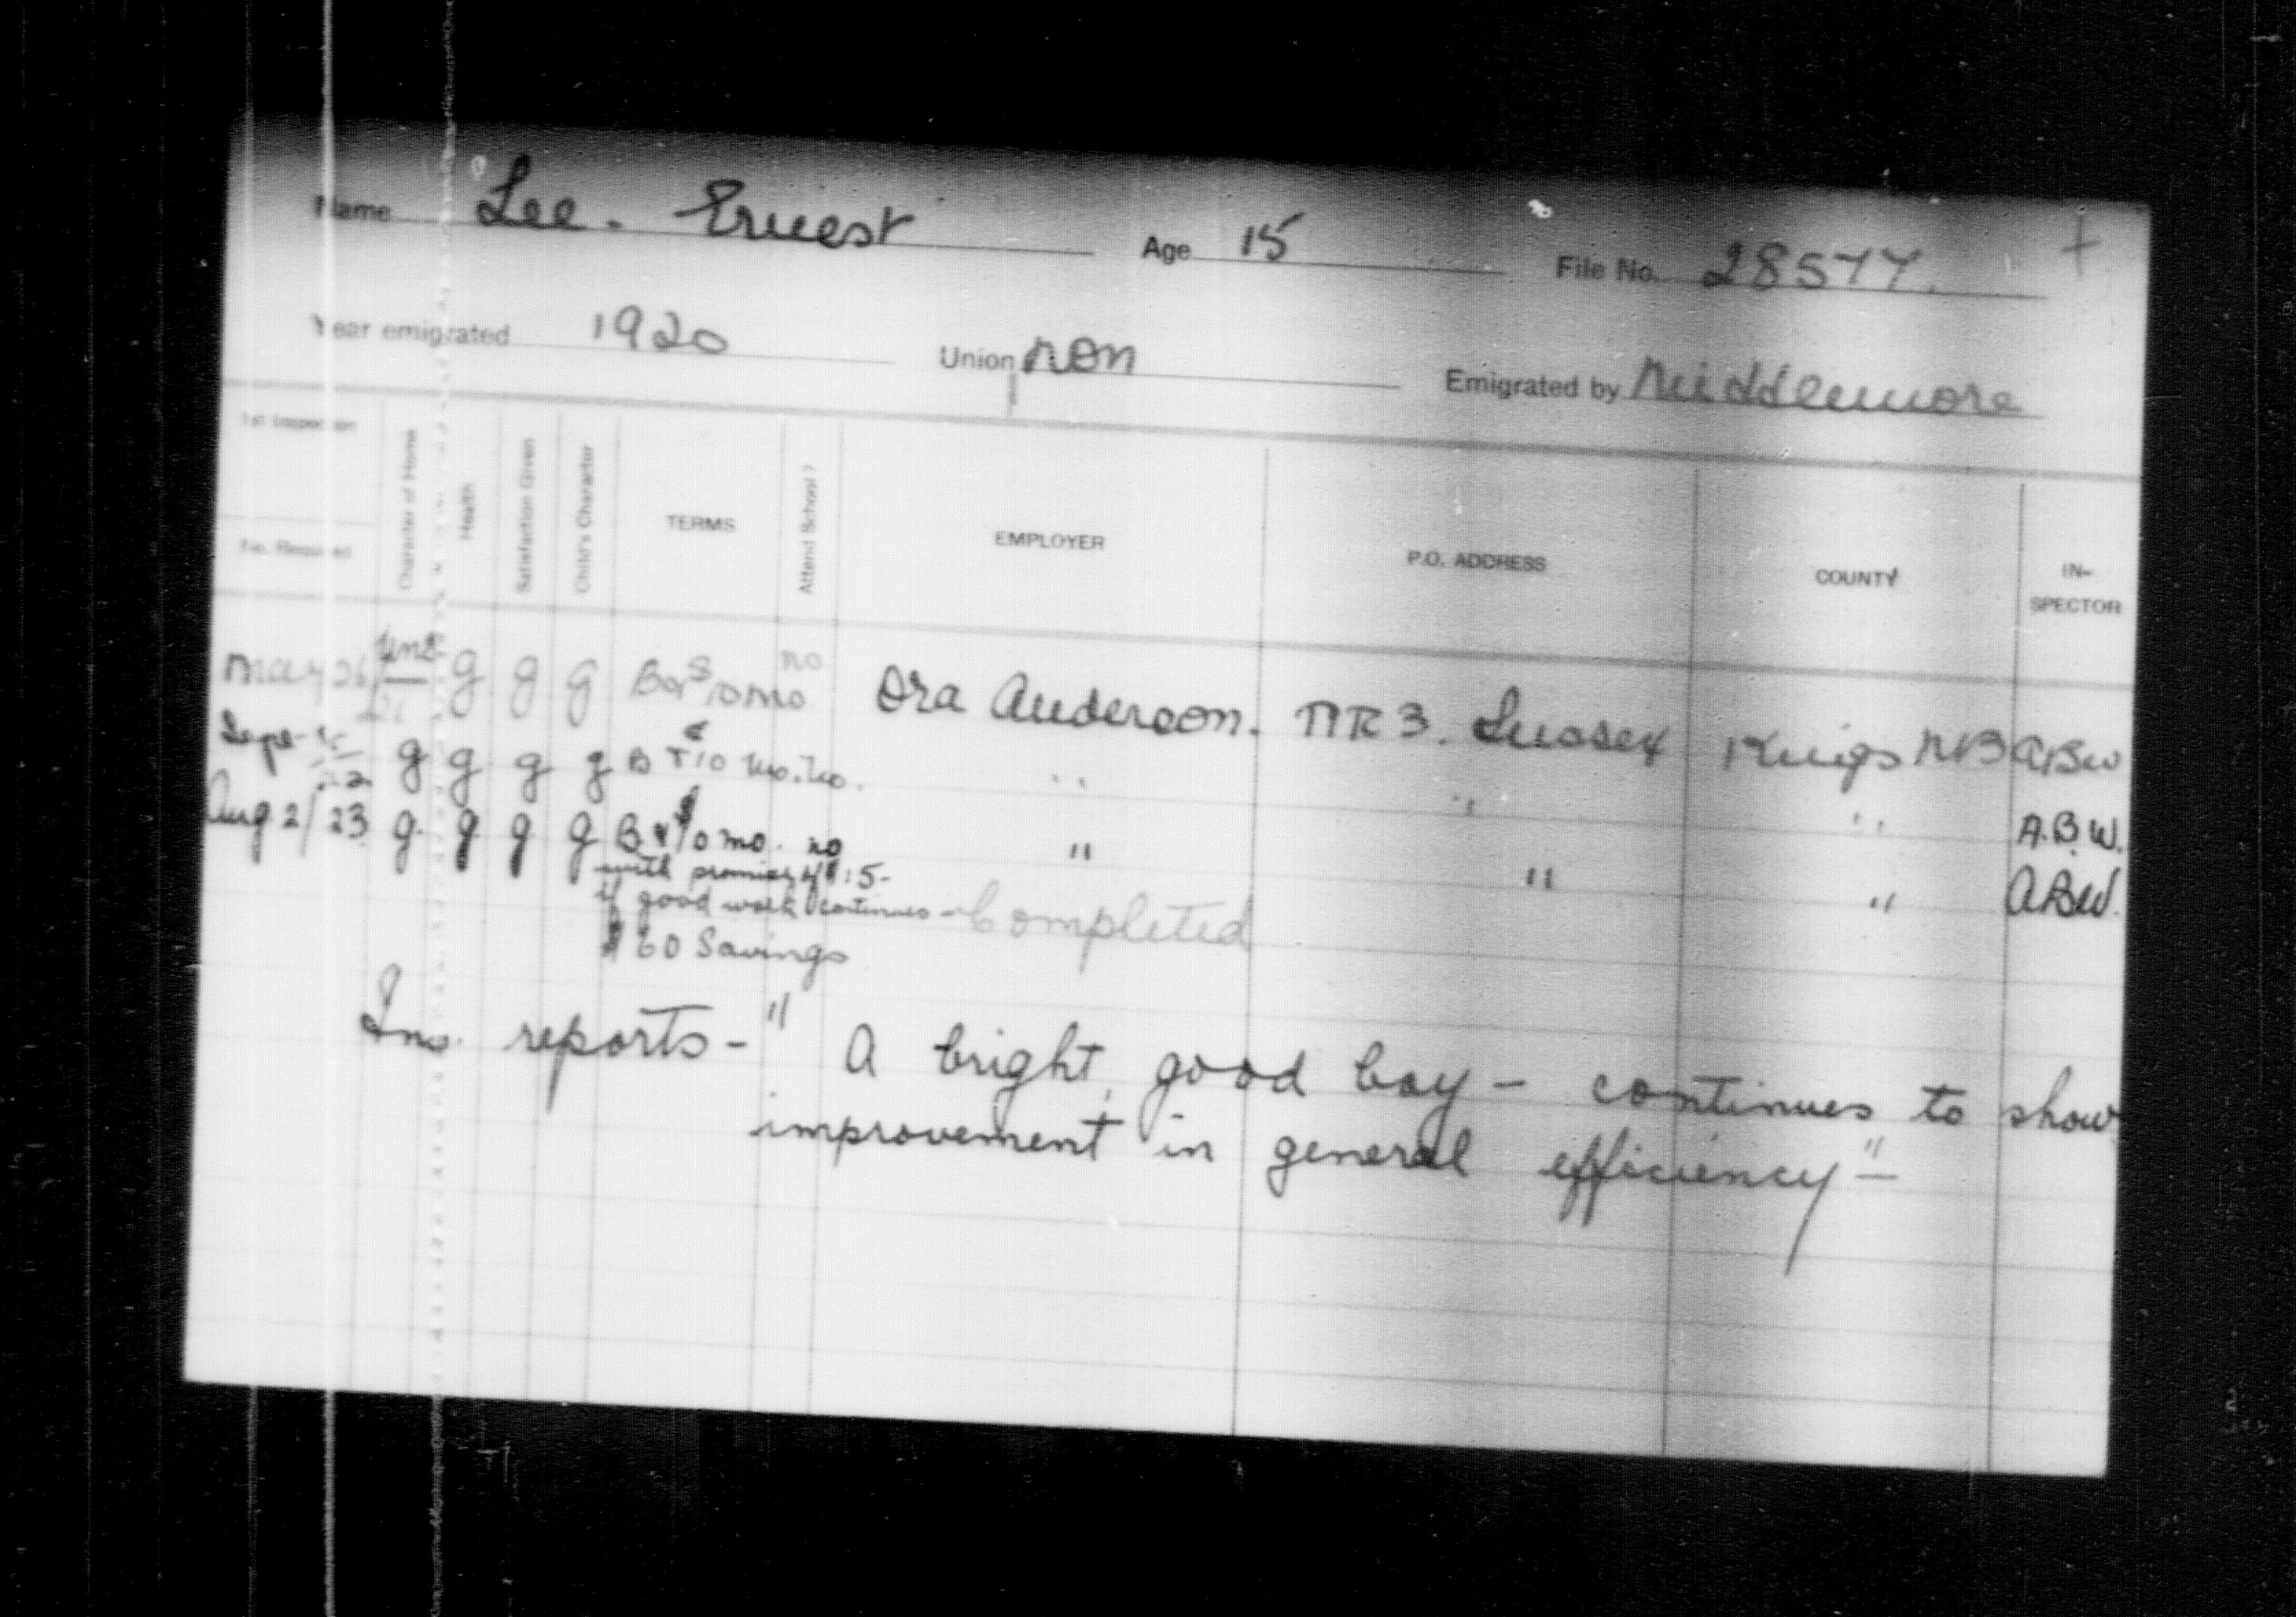 Name Lee. Ernest Age 15 File No. 28577. +
Year emigrated 1920 Union non Emigrated by Middlemore
1st Inspection
No. Required
Character of Home
Health
Satisfaction Given
Child's Character
TERMS
Attend School?
EMPLOYER
P.O. ADDRESS
COUNTY
IN-
SPECTOR
May g g g 10 mo no Ora Anderson. RR 3. Sussex Kings NB ABW
Sept g g g g B + 10 mo. no. " " " A.B.W.
Aug 2/23 g. g g g B + $10 mo. no " " " ABW.
with promise of $15-
if good work continues - Completed
$60 Savings
Ins. reports - " A bright, good boy - continues to show
improvement in general efficiency" -